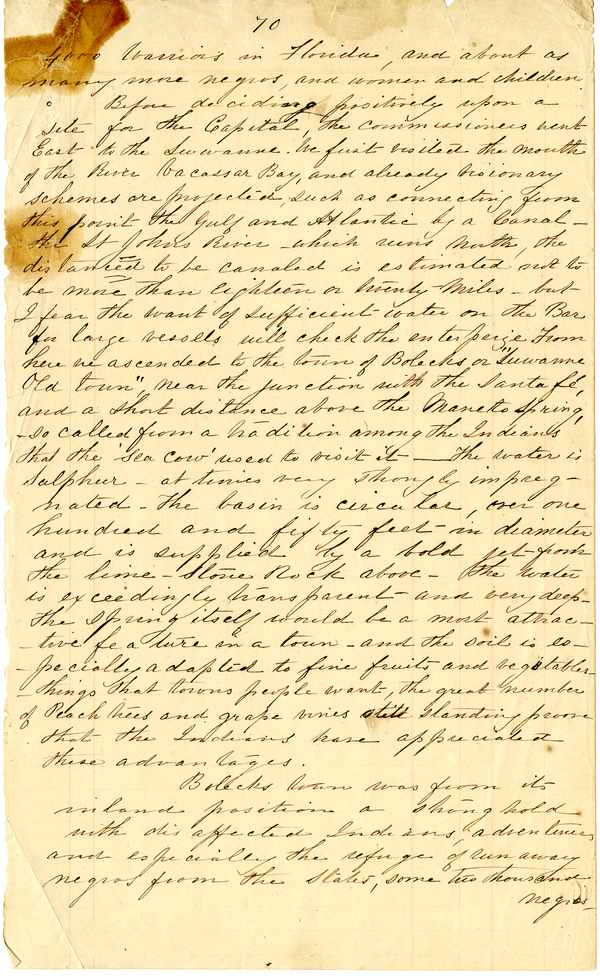 70
4000 Warriors in Florida, and about as
many more negros, and women and children.
Before deciding positively upon a
site for the Capital, the commissioners went
East to the Suwanne. We first visited the mouth
of the River Vacassar Bay, and already visionary
schemes are projected, such as connecting from
this point the Gulf and Atlantic by a Canal –
the St Johns River – which runs North, the
distanced to be canaled is estimated not to
be more than Eighteen or twenty Miles – but
I fear the want of sufficient water on the Bar
for large vessells will check the enterprize From
here we ascended to the town of Bolecks or "Suwanne
Old town", near the junction with the Santa fé,
and a short distance above the Manetto Spring,
– so called from a tradition among the Indians
that the 'Sea Cow' used to visit it — The water is
Sulphur – at times very strongly impreg-
nated – The basin is circular, over one
hundred and fifty feet in diameter
and is supplied by a bold jet from
the lime – Stone Rock above – The Water
is exceedingly transparent and very deep –
The Spring itself would be a most attrac-
-tive feature in a town – and the soil is es-
-pecially adapted to fine fruits and vegetables –
– things that towns people want, the great number
of Peach trees and grape vines still standing prove
that the Indians have appreciated
these advantages.
Bolecks town was from its
inland position a strong hold
with disaffected Indians, adventurers
and especially the refuge of run away
negros from the States, some two thousand
negros –